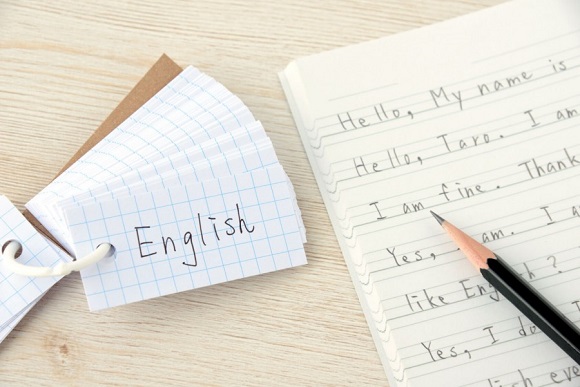 English
Hello, My name is
Hello, Taro. I am
I am fine. Thank
Yes, am. I a
like English?
Yes, I do